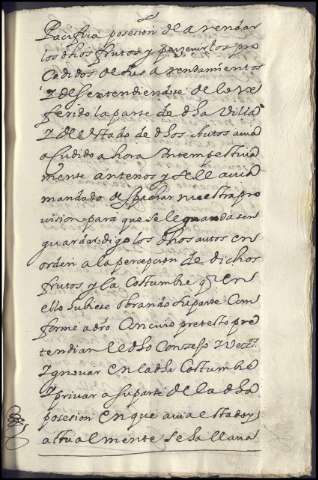 Pacifica posesion de arendar
los dhos frutos y perzevir los pro
cedidos de sus arendamientos
Y desentendiendose de lo re
ferido la parte de dha Villa
Y del estado de dhos autos avia
acudido ahora yntempestiva
mente ante nos y se le avia
mandado despachar nuestra pro
vision para que se le guardasen
guardar digo los dhos autos en
orden a la percepcion de dichos
frutos y la Costumbre q en
ello hubiese obrando su parte Con
forme a dro Con cuio pretesto pre
tendian el dho Consejo y vezos
Ynovar en la dha Costumbre
Y privar a su parte de la dha
posesion en que avia estado y
actualmente se hallava